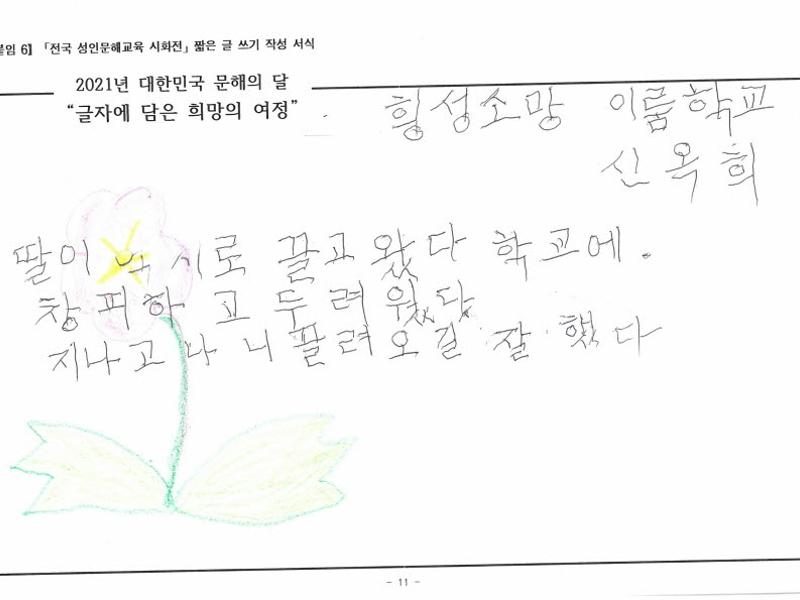 붙임 6】「전국 성인문해교육 시화전」 짧은 글 쓰기 작성 서식
2021년 대한민국 문해의 달
“글자에 담은 희망의 여정”
횡성소망 이룸학교
신옥희
딸이 억지로 끌고 왔다 학교에.
창피하고 두려웠다
지나고 나니 끌려오길 잘 했다
- 11 -